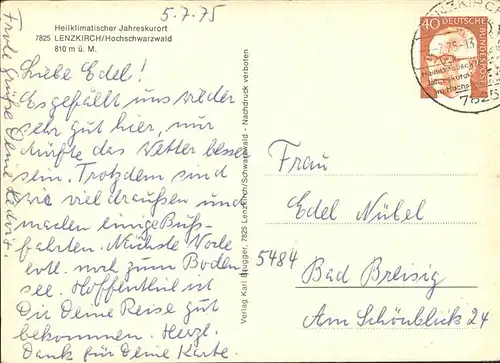 5.7.75
Heilklimatischer Jahreskurort
7825 LENZKIRCH/Hochschwarzwald
810 m ü. M.
Liebe Edel!
Es gefällt uns wieder
sehr gut hier, nur
dürfte das Wetter besser
sein. Trotzdem sind
wir viel draußen und
machen einige Buß-
fahrten. Nächste Woche
evtl. noch zum Boden
see. Hoffentlich ist
Dir Deine Reise gut
bekommen. Herzl.
Dank für Deine Karte.
Frohe Grüße Deine
Verlag Karl Brugger, 7825 Lenzkirch/Schwarzwald - Nachdruck verboten
40 DEUTSCHE
BUNDESPOST
LENZKIRCH
-7.75-13
Heilklimatischer
Jahreskurort
im Hochsch
7825
Frau
Edel Nübel
5484
Bad Breisig
Am Schönblick 24